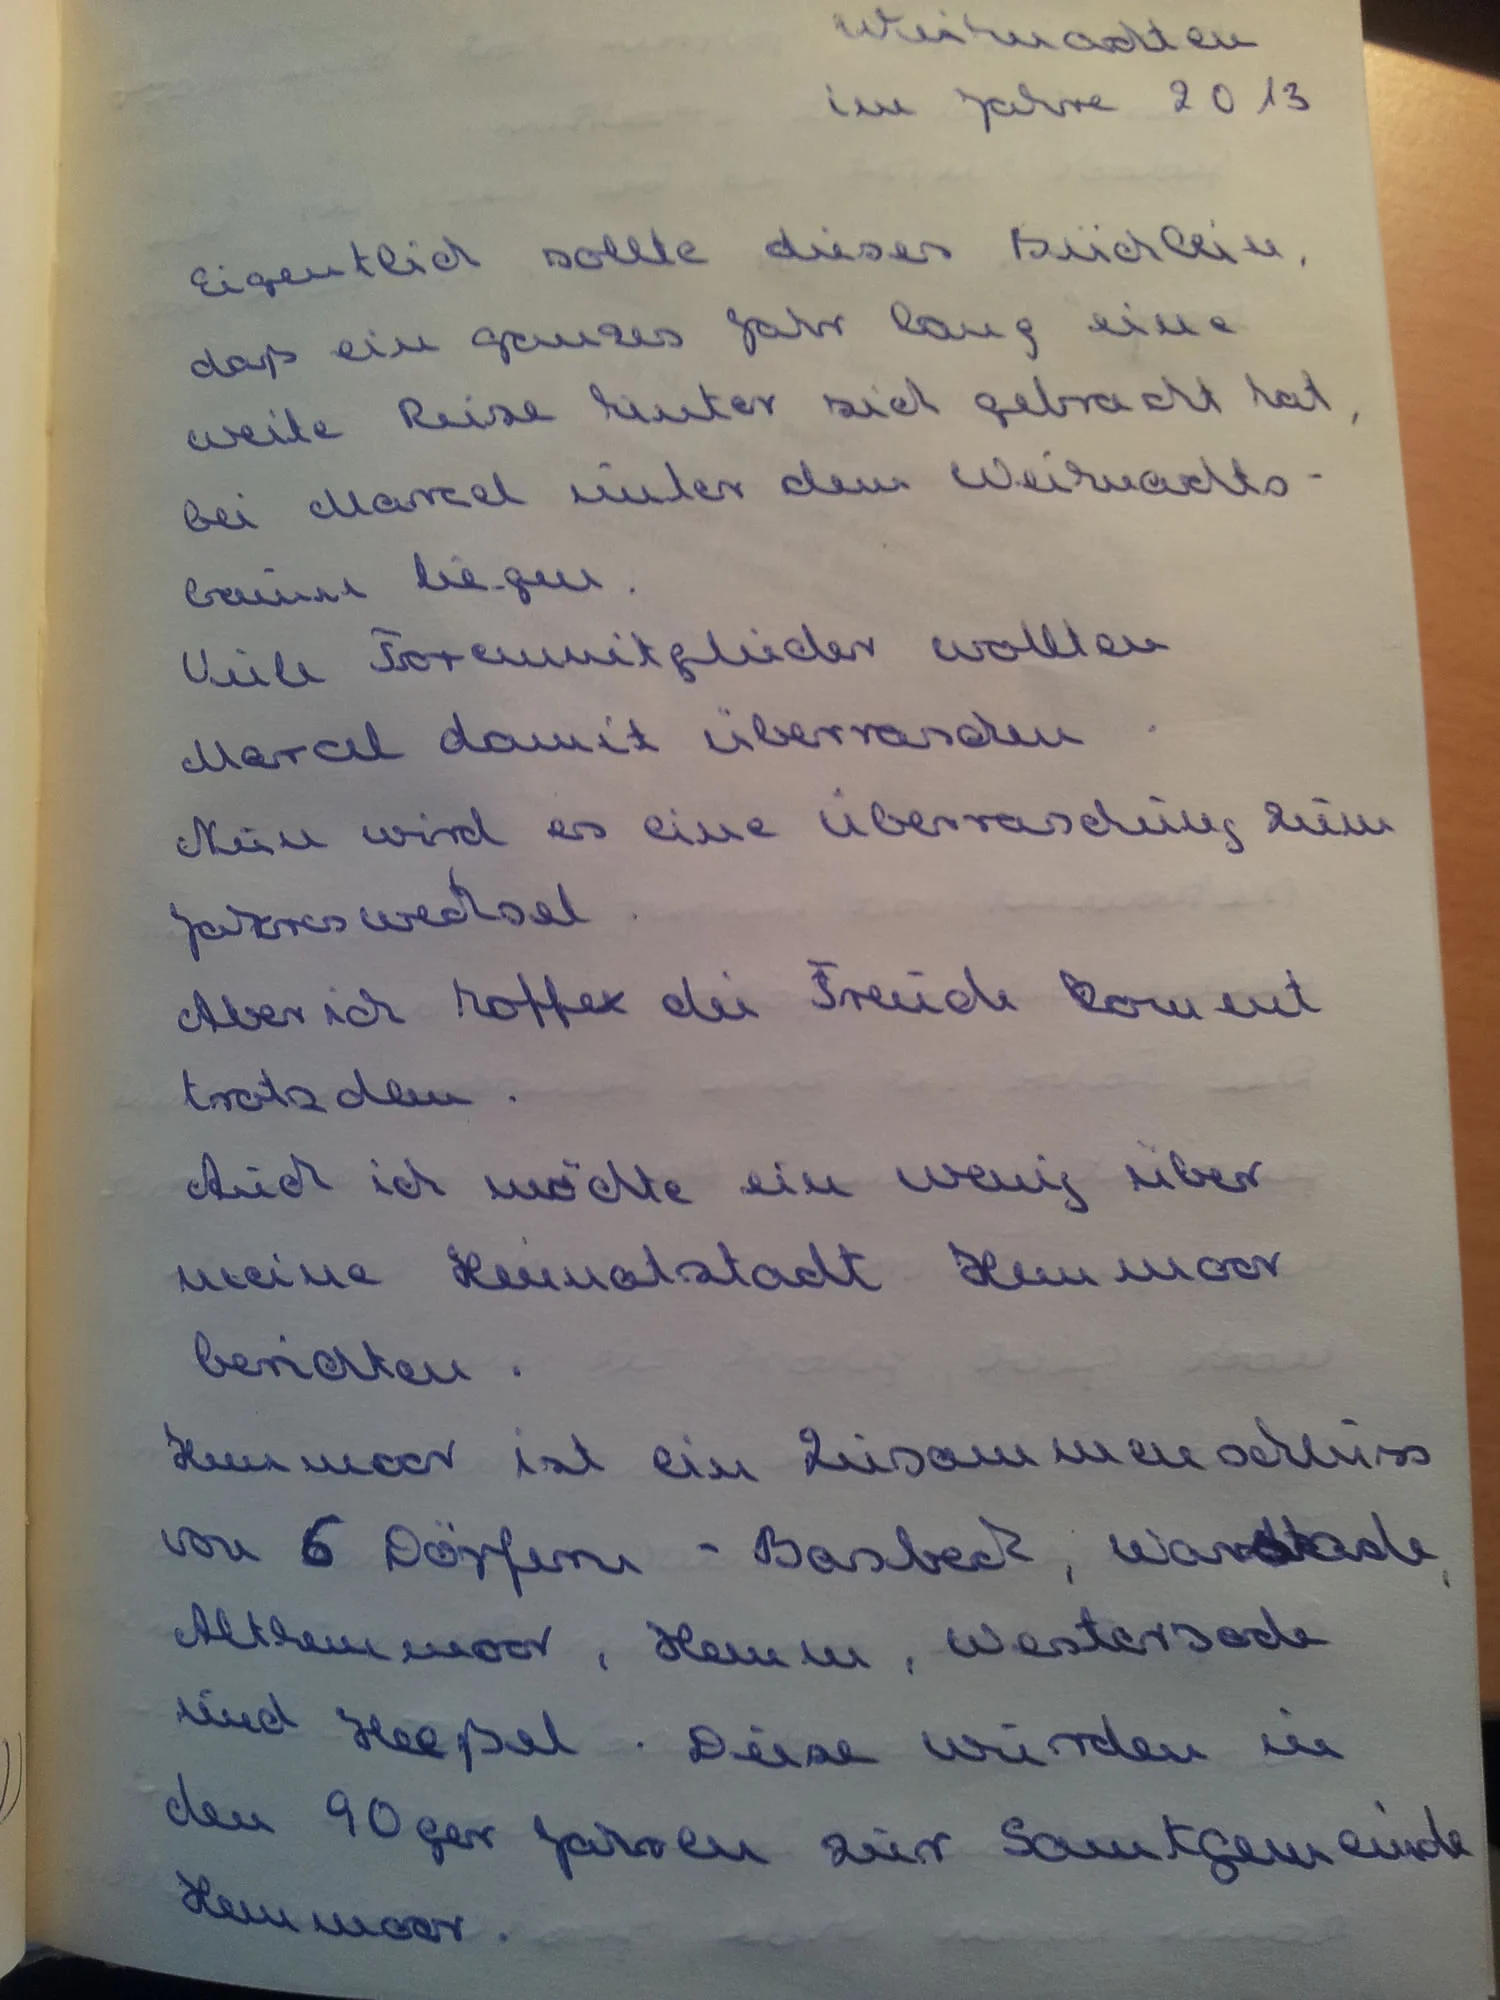 Weihnachten
im Jahre 2013
Eigentlich sollte dieses Büchlein,
daß ein ganzes Jahr lang eine
weite Reise hinter sich gebracht hat,
bei Marcel unter dem Weihnachts-
baum liegen.
Viele Forenmitglieder wollten
Marcel damit überraschen.
Nun wird es eine Überraschung zum
Jahreswechsel.
Aber ich hoffe die Freude kommt
trotzdem.
Auch ich möchte ein wenig über
meine Heimatstadt Hemmoor
berichten.
Hemmoor ist ein Zusammenschluss
von 6 Dörfern - Basbeck, Warstade,
Althemmoor, Hemm, Westersode
und Heeßel. Diese wurden in
den 90ger Jahren zur Samtgemeinde
Hemmoor.